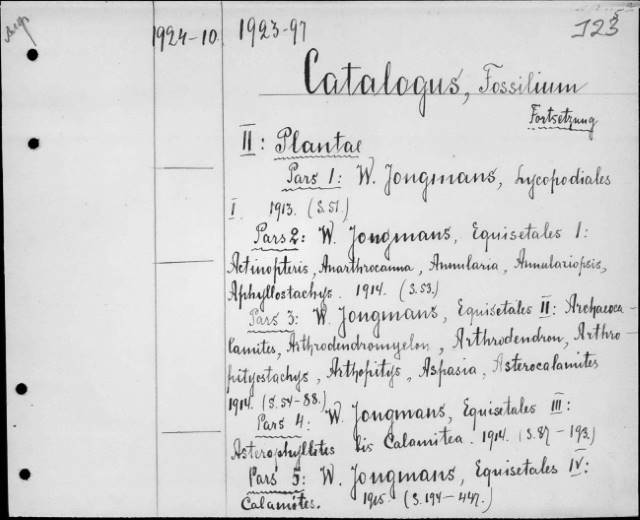 1924-10 1923-97 123
Catalogus, Fossilium
Fortsetzung
II: Plantae
Pars 1: W. Jongmans, Lycopodiales
I. 1913. (S.51.)
Pars 2: W. Jongmans, Equisetales I:
Actinopteris, Anarthrocanna, Annularia, Annulariopsis,
Aphyllostachys. 1914. (S.53.)
Pars 3: W. Jongmans, Equisetales II: Archaeoca-
lamites, Arthrodendromyelon, Arthrodendron, Arthro-
pityostachys, Arthopitys, Aspasia, Asterocalamites
1914. (S.54-88.)
Pars 4: W. Jongmans, Equisetales III:
Asterophyllites bis Calamitea. 1914. (S.87-193.)
Pars 5: W. Jongmans, Equisetales IV:
Calamites. 1915. (S.194-447.)